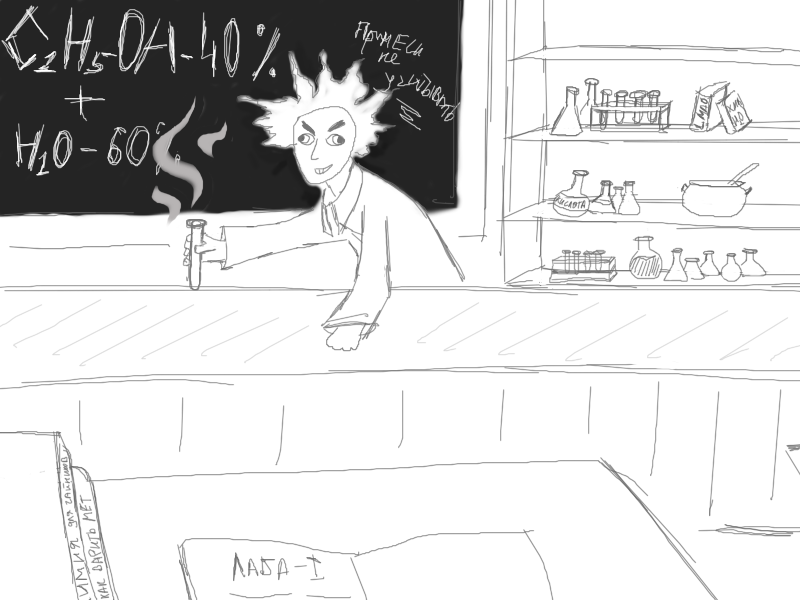 C₂H₅-OH-40%
+
H₂O-60%
Примеси
не
учитывать
КИСЛОТА
ХИМИЯ для чайников
КАК ВАРИТЬ МЕТ
ЛАБА-I